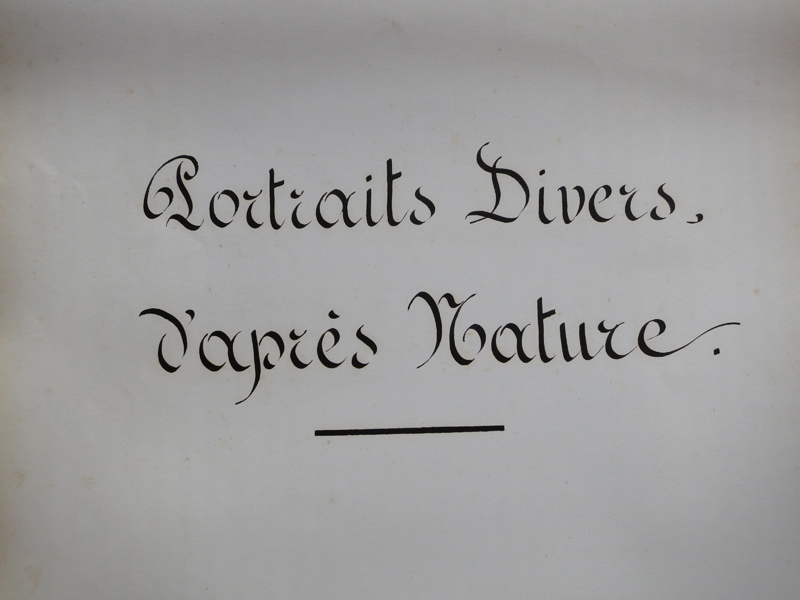 Portraits Divers,
d'après Nature.